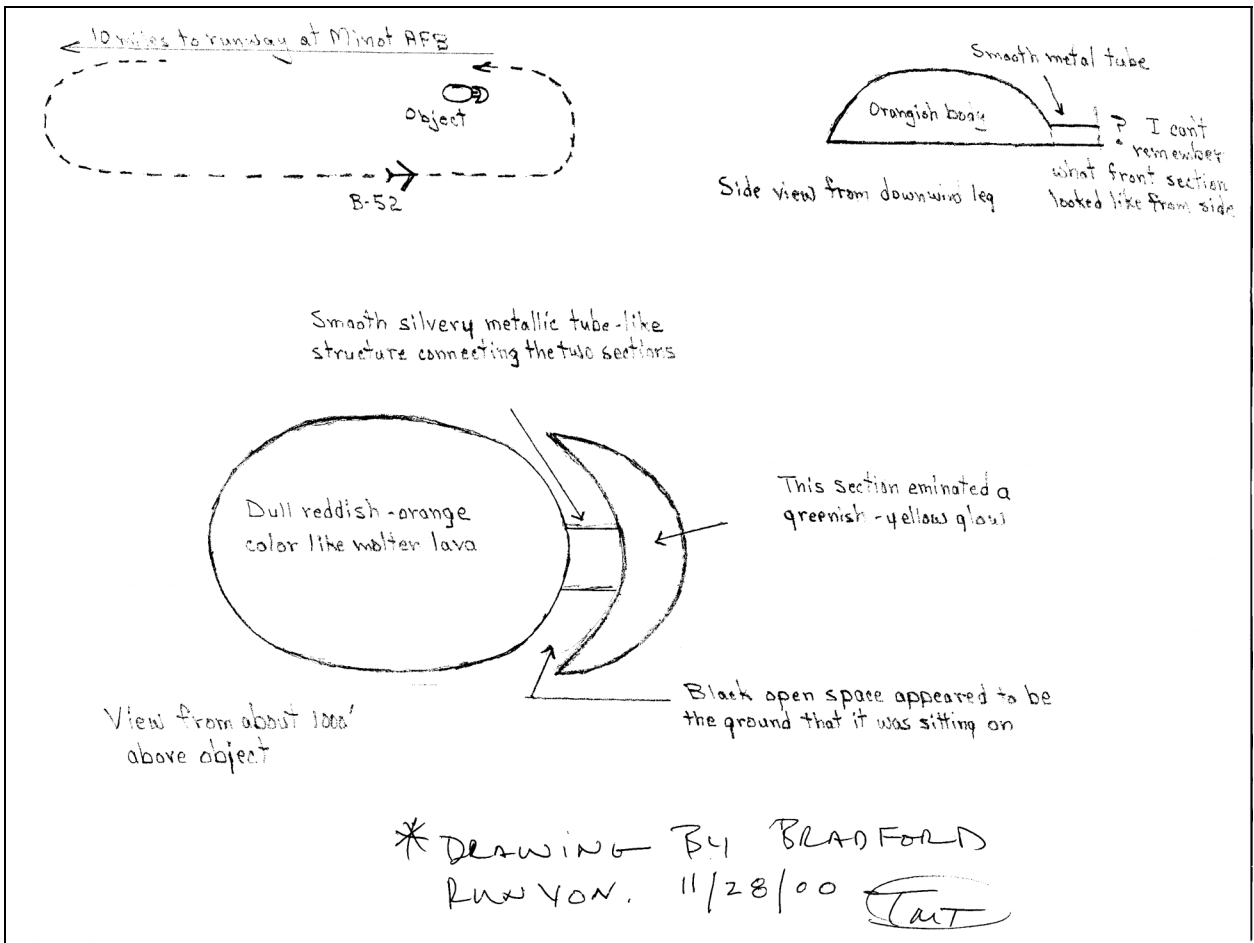 10 miles to runway at Minot AFB
Object
B-52
Smooth metal tube
Orangish body
? I can't
remember
what front section
looked like from side
Side view from downwind leg
Smooth silvery metallic tube-like
structure connecting the two sections
Dull reddish-orange
color like molter lava
This section eminated a
greenish-yellow glow
Black open space appeared to be
the ground that it was sitting on
View from about 1000'
above object
* DRAWING BY BRADFORD
RUNYON. 11/28/00